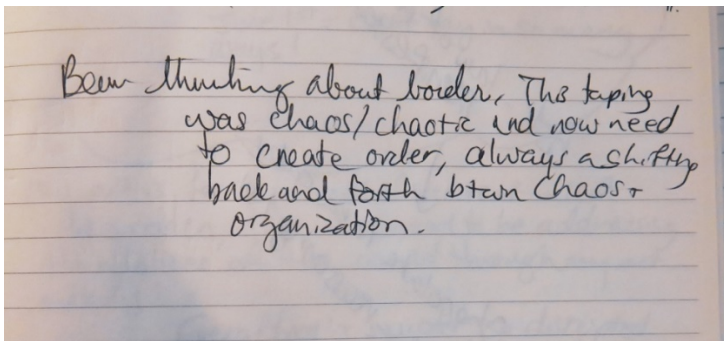 Been thinking about border, This taping
was chaos/chaotic and now need
to create order, always a shifting
back and forth btwn Chaos +
organization.